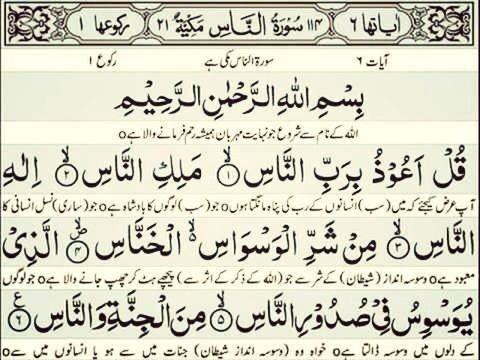 اٰیاتها ٦ ١١٤ سُوْرَةُ النَّاسِ مَكِّيَّةٌ ٢١ رکوعها ١
آیات ٦ سورۃ الناس مکی ہے رکوع ١
بِسْمِ اللّٰهِ الرَّحْمٰنِ الرَّحِيْمِ
اللہ کے نام سے شروع جو نہایت مہربان ہمیشہ رحم فرمانے والا ہے o
قُلْ اَعُوْذُ بِرَبِّ النَّاسِۙ ١ مَلِكِ النَّاسِۙ ٢ اِلٰهِ
آپ عرض کیجئے کہ میں (سب) انسانوں کے رب کی پناہ مانگتا ہوں o جو (سب) لوگوں کا بادشاہ ہے o جو (ساری) نسل انسانی کا
النَّاسِۙ ٣ مِنْ شَرِّ الْوَسْوَاسِ ۙ۬ الْخَنَّاسِ ۪ۙ ٤ الَّذِيْ
معبود ہے o وسوسہ انداز (شیطان) کے شر سے جو (اللہ کے ذکر کے اثر سے) پیچھے ہٹ کر چھپ جانے والا ہے o جو لوگوں
يُوَسْوِسُ فِيْ صُدُوْرِ النَّاسِۙ ٥ مِنَ الْجِنَّةِ وَالنَّاسِ ٦ ع
کے دلوں میں وسوسہ ڈالتا ہے o خواہ وہ (وسوسہ انداز شیطان) جنات میں سے ہو یا انسانوں میں سے o